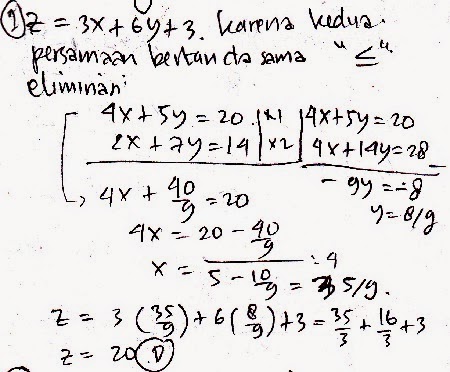 ① Z = 3x + 6y + 3. karena kedua
persamaan bertanda sama "≤"
eliminasi
4x + 5y = 20 |x1| 4x + 5y = 20
2x + 7y = 14 |x2| 4x + 14y = 28
-9y = -8
y = 8/9
4x + 40/9 = 20
4x = 20 - 40/9
: 4
x = 5 - 10/9 = 35/9.
Z = 3 (35/9) + 6 (8/9) + 3 = 35/3 + 16/3 + 3
Z = 20 (D)